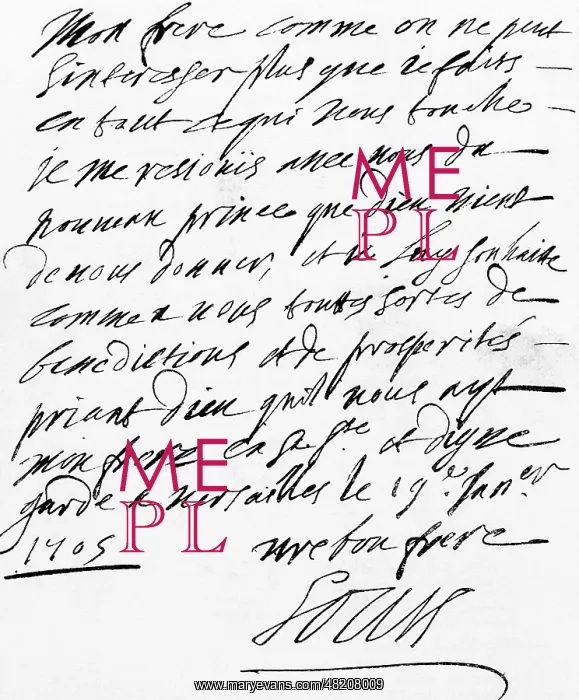 Mon frere comme on ne peut
sinteresser plus que ie faits
en tout ce qui vous touche
je me resiouis avec vous du
nouveau prince que dieu vient
de vous donner, et ie luy souhaitte
comme a vous touttes sortes de
benedictions et de prosperités
priant dieu quil vous ayt
mon frere en sa ste et digne
garde a Versailles le 19e. Janer
1705 vre bon frere
Louis
ME
PL
ME
PL
www.maryevans.com/48208009